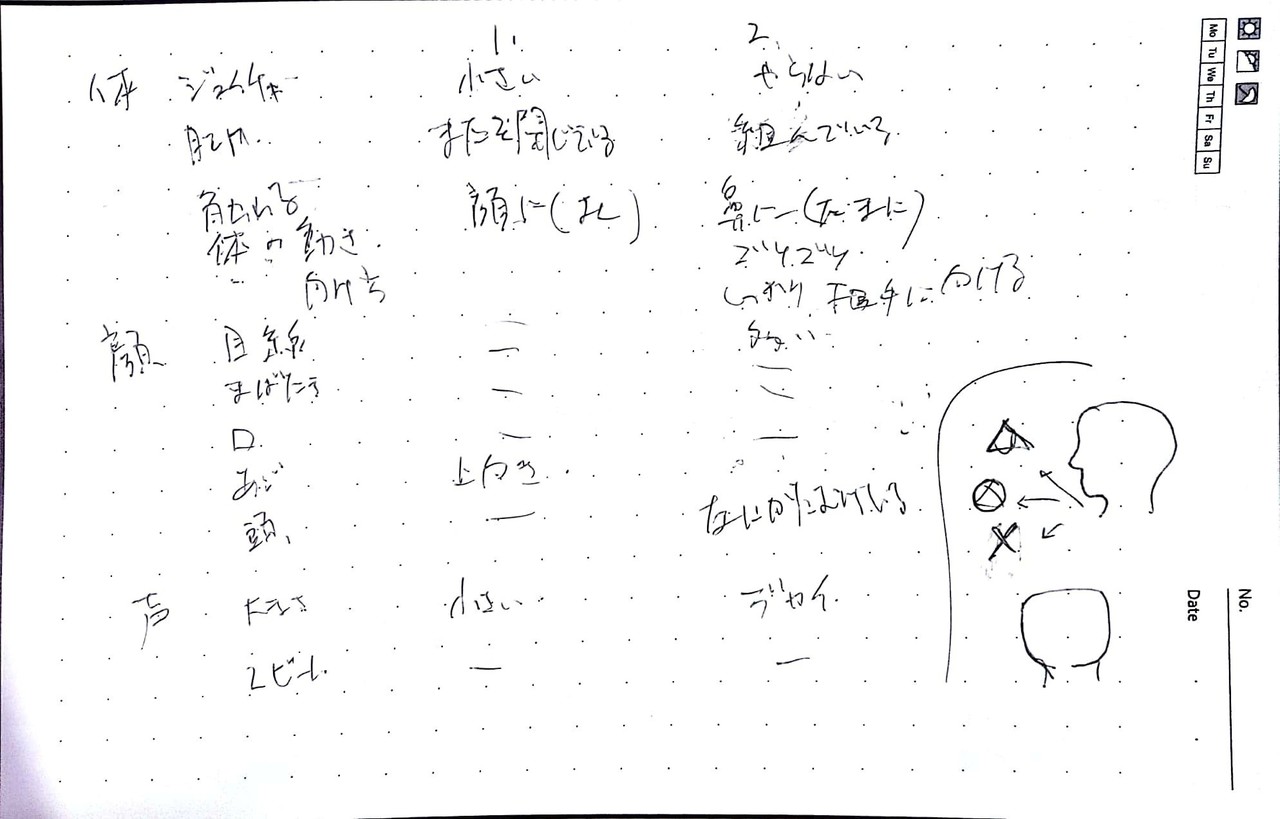 1. 2.
体 ジェスチャー 小さい やらない
また を閉じている 組んでいる
触れる 顔に( ) 鼻に(たまに)
体の動き. ゴリゴリ
〃 向け方 しっかり 相手に向ける
顔 目線 — 多い
まばたき — —
口 — —
あご 上向き.
頭、 — 左にかたむけている
声 大きさ 小さい デカイ
スピード — —
Mo Tu We Th Fr Sa Su
No.
Date